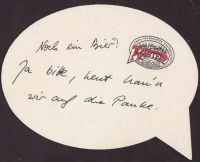 Noch ein Bier?
Ja bitte, heut hau'n
wir auf die Pauke.